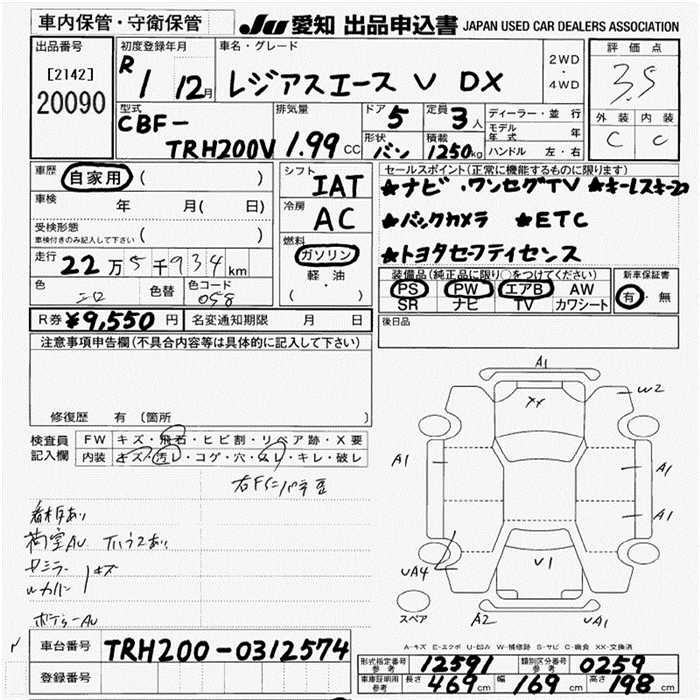 車内保管・守衛保管 JU 愛知 出品申込書 JAPAN USED CAR DEALERS ASSOCIATION
出品番号 初度登録年月 車名・グレード 評価点
[2142] R 1 12月 レジアスエース V DX 2WD・4WD 3.5
20090
型式 排気量 ドア 5 定員 3人 ディーラー・並行 外装 内装
CBF- 形状 積載 モデル年式 年 C C
TRH200V 1.99 CC バン 1250kg ハンドル 左・右
車歴 自家用 ( ) シフト IAT セールスポイント(正常に機能するものに限ります)
★ナビ・ワンセグTV ★キーレスキー2
車検 年 月( 日) 冷房 AC ★バックカメラ ★ETC
受検形態 ( ) ★トヨタセーフティセンス
車検付きのみ記入して下さい
走行 22万5千934km 燃料 ガソリン 装備品(純正品に限り○をつけてください) 新車保証書
軽・油 PS PW エアB AW 有・無
色 シロ 色替 色コード 058 ( ) SR ナビ TV カワシート
R券 ¥9,550円 名変通知期限 月 日 後日品
注意事項申告欄(不具合内容等は具体的に記入して下さい)
修復歴 有 〔箇所 〕
検査員 FW キズ・飛石・ヒビ割・リペア跡・X要
記入欄 内装 キズ・汚レ・コゲ・穴・スレ・キレ・破レ
看板あり
荷室AU
ボデーAU
A1
W2
XX
A1
A1
A1
UA4
U1
スペア A2 UA1
A-キズ E-エクボ U-凹み W-補修跡 S-サビ C-腐食 XX-交換済
車台番号 TRH200-0312574
登録番号
形式指定番号 参考 12591 類別区分番号 参考 0259
車庫証明用 参考 長さ 469cm 幅 169cm 高さ 198cm